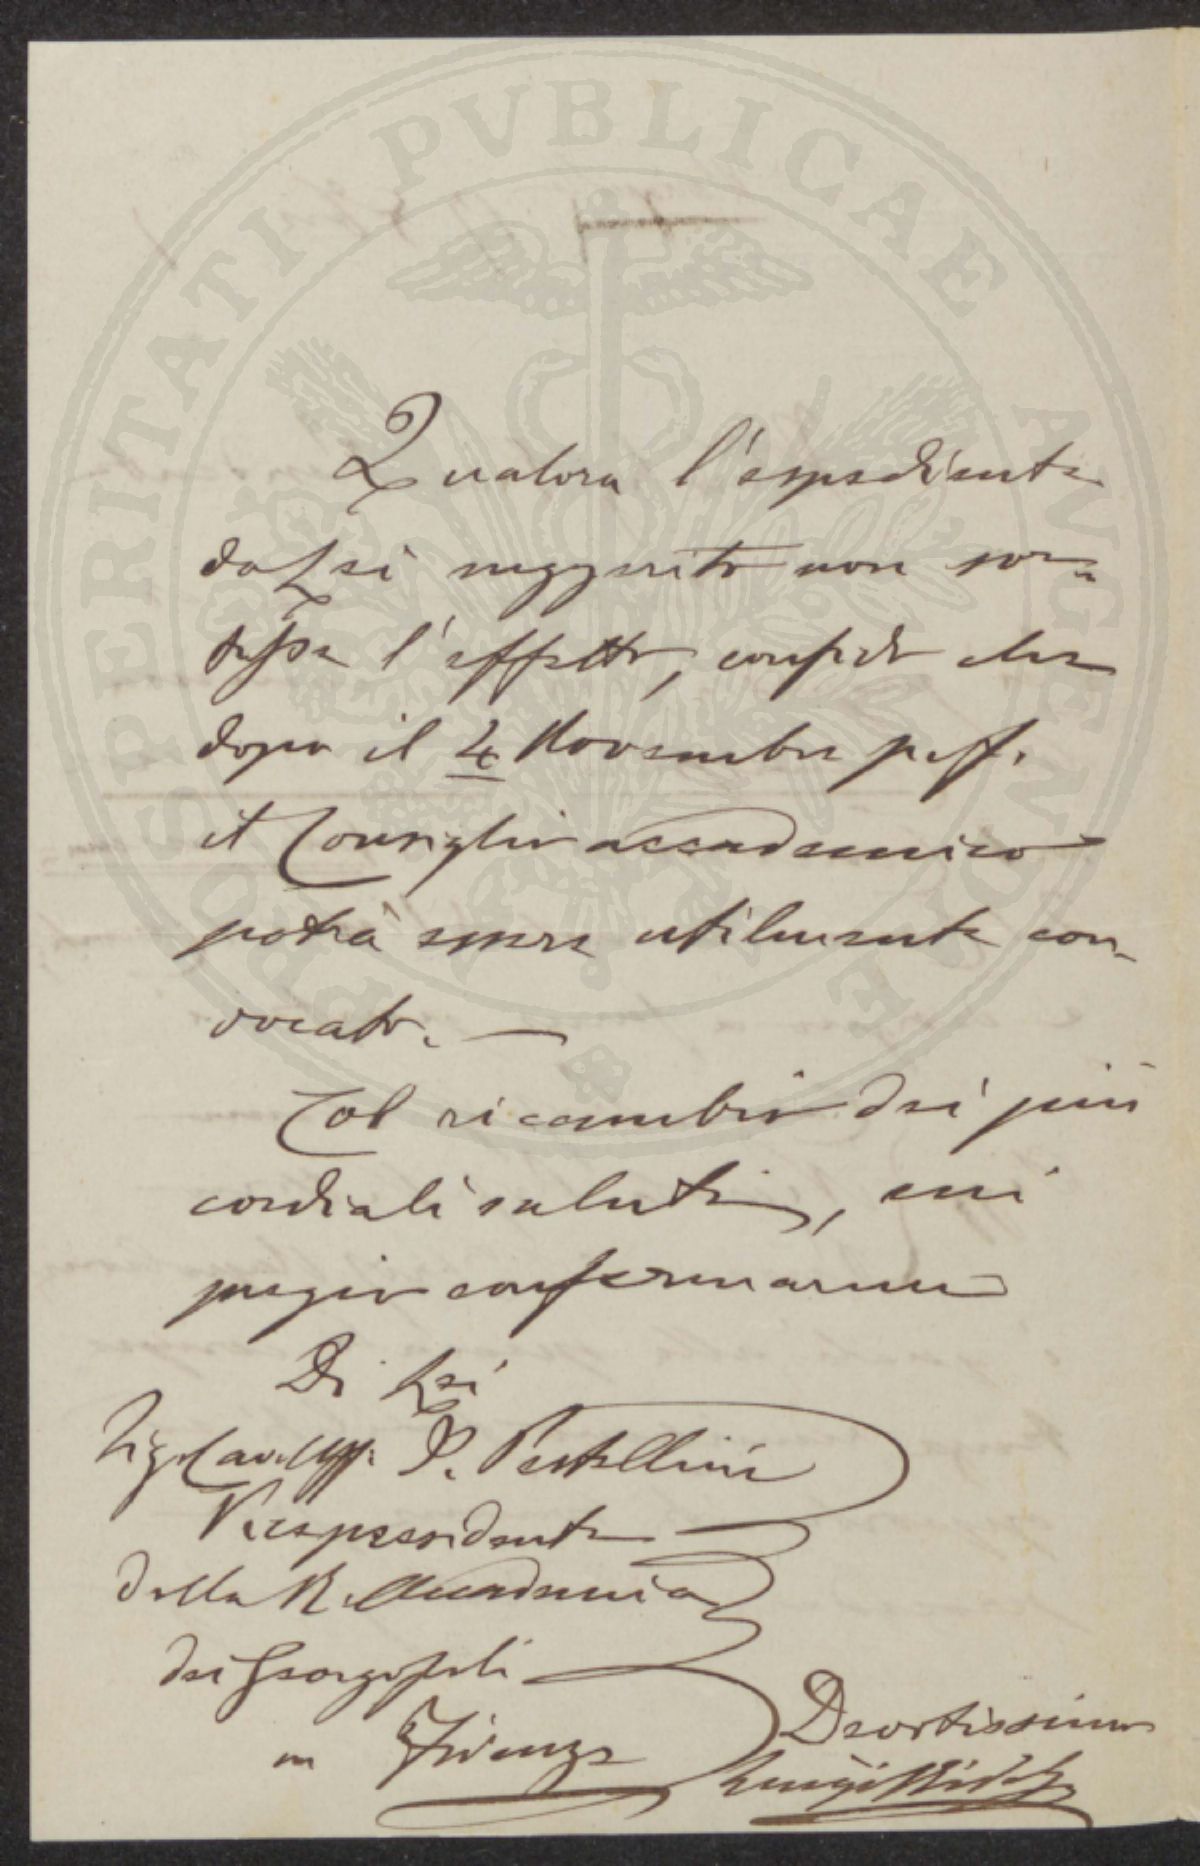 PROSPERITATI PVBLICAE AVGENDAE
Qualora l'espediente
da Lei suggerito non sor-
tisse l'effetto, confido che
dopo il 4 Novembre p.ff.
il Consiglio accademico
potrà essere utilmente con-
vocato. —
Col ricambio dei più
cordiali saluti, mi
pregio confermarmi
Di Lei
Sig. Cav. Uff. P. Pestellini
Vicepresidente
della R. Accademia
dei Georgofili
in Firenze
Devotissimo
Luigi Ridolfi